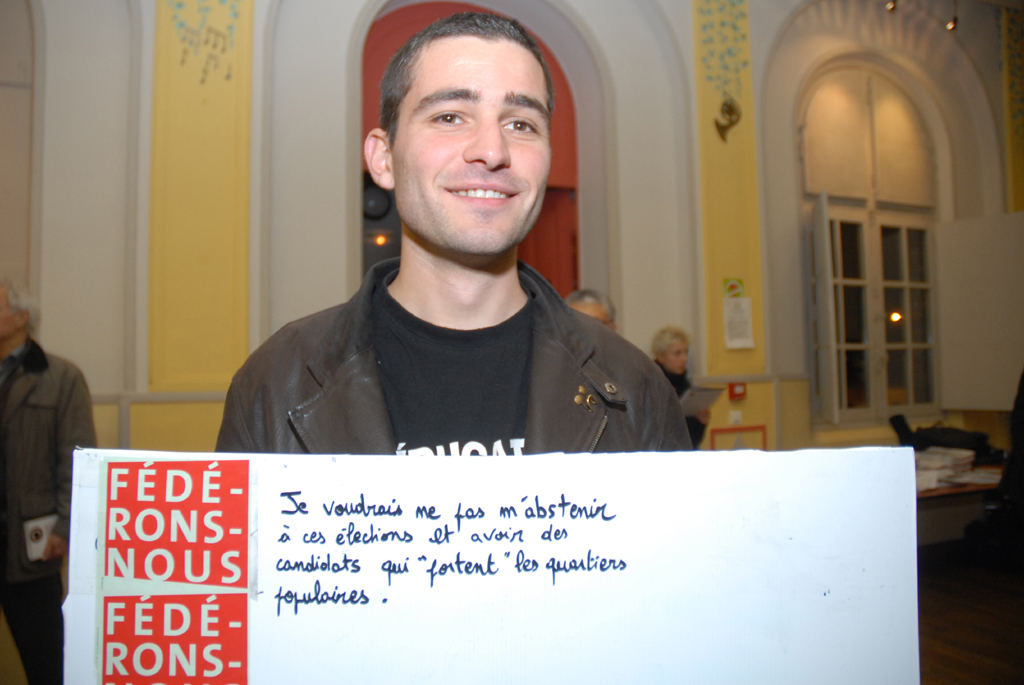 FÉDÉ-
RONS-
NOUS
FÉDÉ-
RONS-
Je voudrais ne pas m'abstenir
à ces élections et avoir des
candidats qui "portent" les quartiers
populaires.